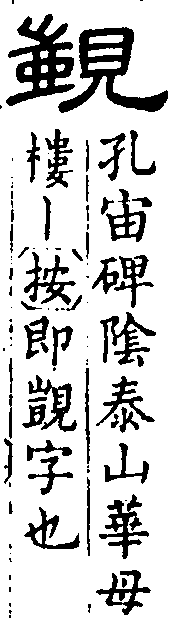 孔宙碑陰泰山華母
樓丨按即覬字也